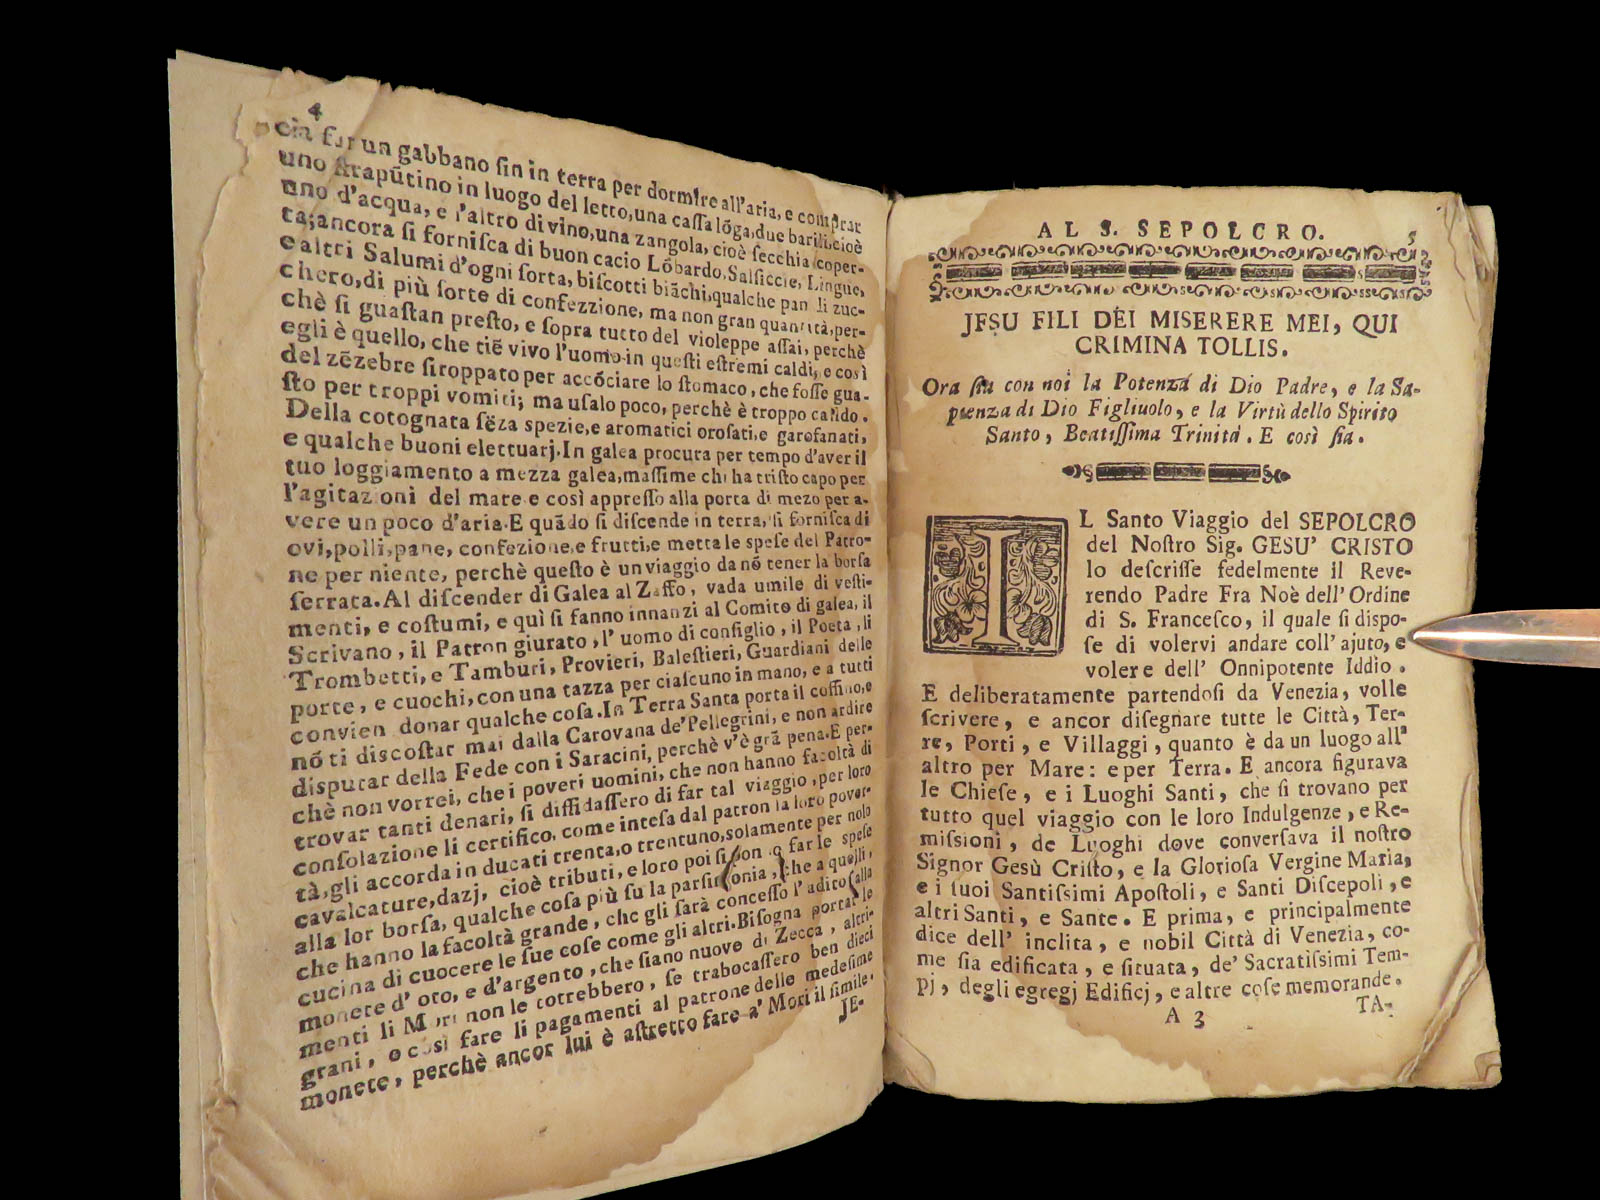 4
cia far un gabbano ſin in terra per dormire all'aria, e comprar
uno ſtrapūtino in luogo del letto, una caſſa lóga, due barili, cioè
uno d'acqua, e l'altro di vino, una zangola, cioè ſecchia coper-
ta; ancora ſi forniſca di buon cacio Lóbardo, Salſiccie, Lingue,
e altri Salumi d'ogni ſorta, biſcotti biāchi, qualche pan di zuc-
chero, di più ſorte di confezzione, ma non gran quantità, per-
chè ſi guaſtan preſto, e ſopra tutto del violeppe aſſai, perchè
egli è quello, che tiē vivo l'uomo in queſti eſtremi caldi, e così
del zēzebre ſiroppato per accóciare lo ſtomaco, che foſſe gua-
ſto per troppi vomiti; ma uſalo poco, perchè è troppo calido.
Della cotognata ſēza spezie, e aromatici oroſati, e garofanati,
e qualche buoni elettuarj. In galea procura per tempo d'aver il
tuo loggiamento a mezza galea, maſſime chi ha triſto capo per
l'agitazioni del mare e così appreſſo alla porta di mezo per a-
vere un poco d'aria. E quādo ſi diſcende in terra, ſi forniſca di
ovi, polli, pane, confezione, e frutti, e metta le speſe del Patro-
ne per niente, perchè queſto è un viaggio da nō tener la borſa
ſerrata. Al diſcender di Galea al Zaffo, vada umile di veſti-
menti, e coſtumi, e quì ſi fanno innanzi al Comito di galea, il
Scrivano, il Patron giurato, l' uomo di conſiglio, il Poeta, li
Trombetti, e Tamburi, Provieri, Baleſtieri, Guardiani delle
porte, e cuochi, con una tazza per ciaſcuno in mano, e a tutti
convien donar qualche coſa. In Terra Santa porta il coſſino, e
nō ti discoſtar mai dalla Carovana de' Pellegrini, e non ardire
diſputar della Fede con i Saracini, perchè v'è grā pena. E per-
chè non vorrei, che i poveri uomini, che non hanno facoltà di
trovar tanti denari, ſi diffidaſſero di far tal viaggio, per loro
conſolazione li certifico, come inteſa dal patron la loro pover-
tà, gli accorda in ducati trenta, o trentuno, solamente per nolo
cavalcature, dazj, cioè tributi, e loro poi ſi le speſe
alla lor borſa, qualche coſa più ſu la che a quelli,
che hanno la facoltà grande, che gli ſarà conceſſo l' adito alla
cucina di cuocere le ſue coſe come gli altri. Biſogna portar le
monete d' oro, e d'argento, che ſiano nuove di Zecca, altri-
menti li Mori non le torrebbero, ſe trabocaſſero ben dieci
grani, e così fare li pagamenti al patrone delle medeſime
monete, perchè ancor lui è aſtretto fare a' Mori il ſimile.
JE-
AL S. SEPOLCRO. 5
JESU FILI DEI MISERERE MEI, QUI
CRIMINA TOLLIS.
Ora ſia con noi la Potenza di Dio Padre, e la Sa-
pienza di Dio Figliuolo, e la Virtù dello Spirito
Santo, Beatiſſima Trinità. E così ſia.
IL Santo Viaggio del SEPOLCRO
del Noſtro Sig. GESU' CRISTO
lo deſcriſſe fedelmente il Reve-
rendo Padre Fra Noè dell' Ordine
di S. Franceſco, il quale ſi diſpo-
ſe di volervi andare coll' ajuto, e
volere dell' Onnipotente Iddio.
E deliberatamente partendoſi da Venezia, volle
ſcrivere, e ancor diſegnare tutte le Città, Ter-
re, Porti, e Villaggi, quanto è da un luogo all'
altro per Mare: e per Terra. E ancora figurava
le Chieſe, e i Luoghi Santi, che ſi trovano per
tutto quel viaggio con le loro Indulgenze, e Re-
miſſioni, de Luoghi dove converſava il noſtro
Signor Gesù Criſto, e la Glorioſa Vergine Maria,
e i ſuoi Santiſſimi Apoſtoli, e Santi Diſcepoli, e
altri Santi, e Sante. E prima, e principalmente
dice dell' inclita, e nobil Città di Venezia, co-
me ſia edificata, e ſituata, de' Sacratiſſimi Tem-
pj, degli egregj Edificj, e altre coſe memorande.
A 3 TA-